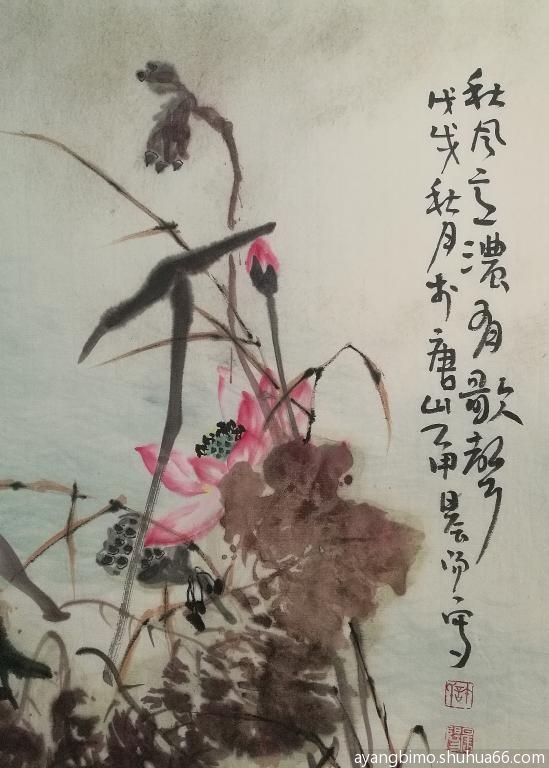 秋风意濃有歌声
戊戌秋月於唐山晨阳写
ayangbimo.shuhua66.com